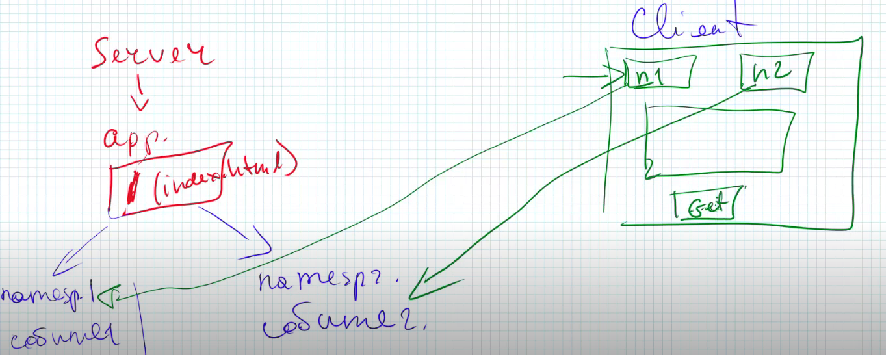 Server
app.
(index.html)
namesp.1
событие1
namesp2.
событие2.
Client
n1
n2
Get